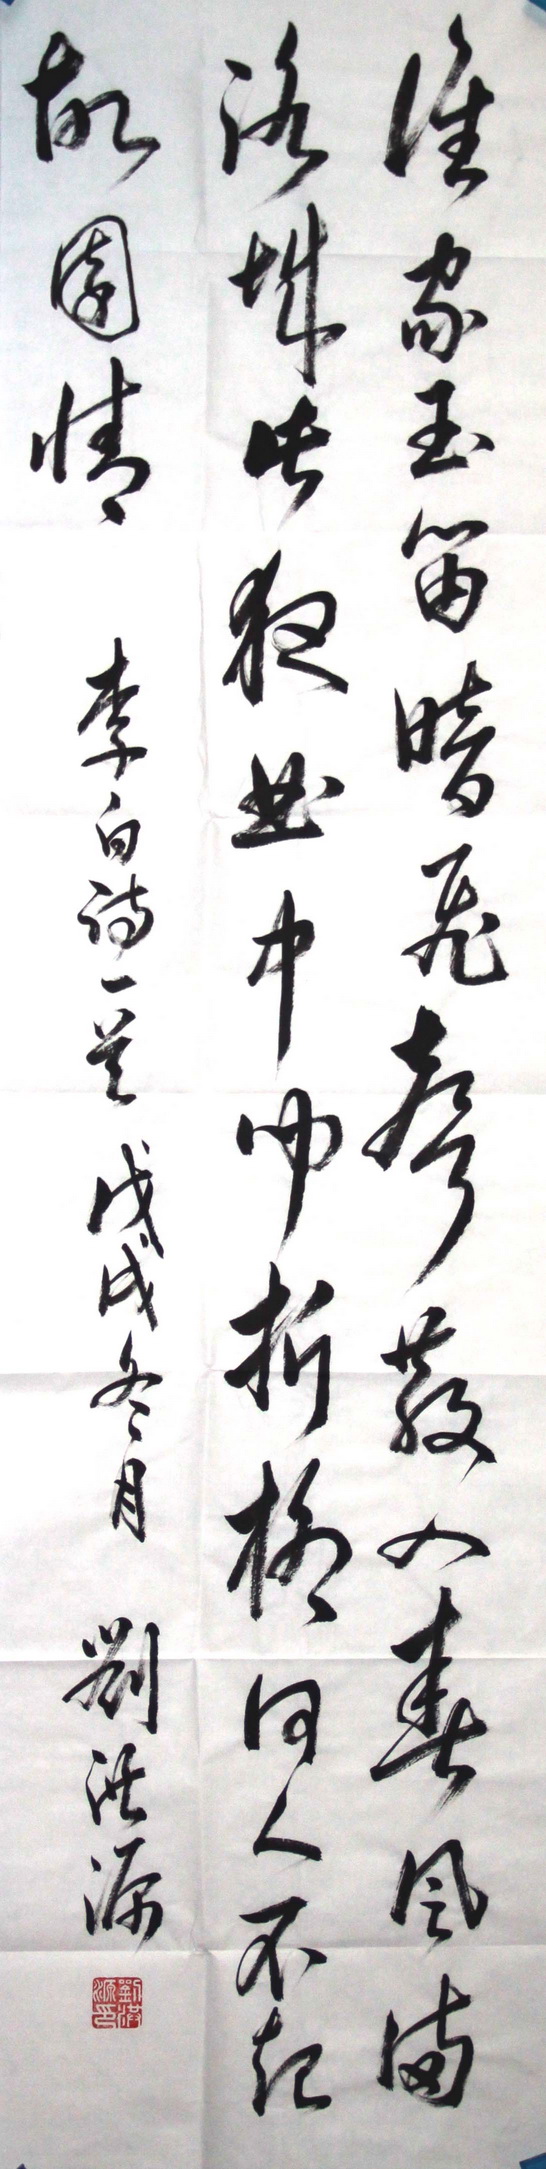 谁家玉笛暗飞声散入春风满
洛城此夜曲中闻折柳何人不起
故园情
李白诗一首 戊戌冬月 劉洪源
劉洪源印